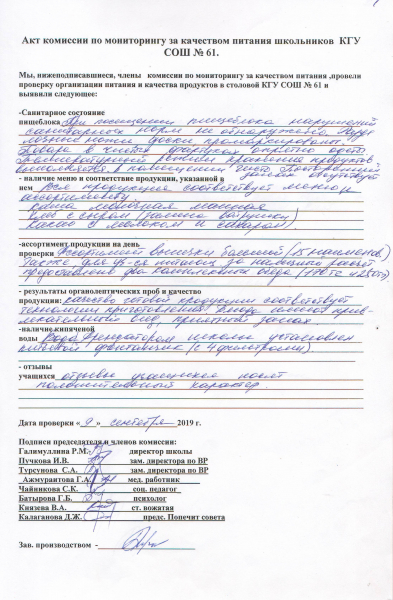 Акт комиссии по мониторингу за качеством питания школьников КГУ
СОШ № 61.
Мы, нижеподписавшиеся, члены комиссии по мониторингу за качеством питания ,провели
проверку организации питания и качества продуктов в столовой КГУ СОШ № 61 и
выявили следующее:
-Санитарное состояние
пищеблока При посещении пищеблока нарушений
санитарных норм не обнаружено.
ножи доски промаркированы.
Повара в чистых фартуках опрятно одеты
температурный режим хранения продуктов
в помещении посторонний
- наличие меню и соответствие продукции, указанной в
нем Вся продукция соответствует меню и
ассортименту.
каша молочная манная
с сыром
какао с молоком и сахаром.
-ассортимент продукции на день
проверки Ассортимент выпечки большой (15 наименов.)
Также для уч-ся питание за наличный расчет
предоставлено два комплексных обеда
- результаты органолептических проб и качество
продукции: качество готовой продукции соответствует
технологии приготовления. Блюда имеют прив-
лекательный вид, приятный запах.
-наличие кипяченой
воды Вода арендатором школы установлен
питьевой фонтанчик (с 4 фильтрами)
- отзывы
учащихся отзывы учащихся носят
положительный характер.
Дата проверки « 9 » сентября 2019 г.
Подписи председателя и членов комиссии:
Галимуллина Р.М.- директор школы
Пучкова И.В. зам. директора по ВР
Турсунова С.А. зам. директора по ВР
Ажмуратова Г.А. мед. работник
Чайникова С.К. соц. педагог
Батырова Г.Б. психолог
Князева В.А. ст. вожатая
Калаганова Д.Ж. предс. Попечит совета
Зав. производством -